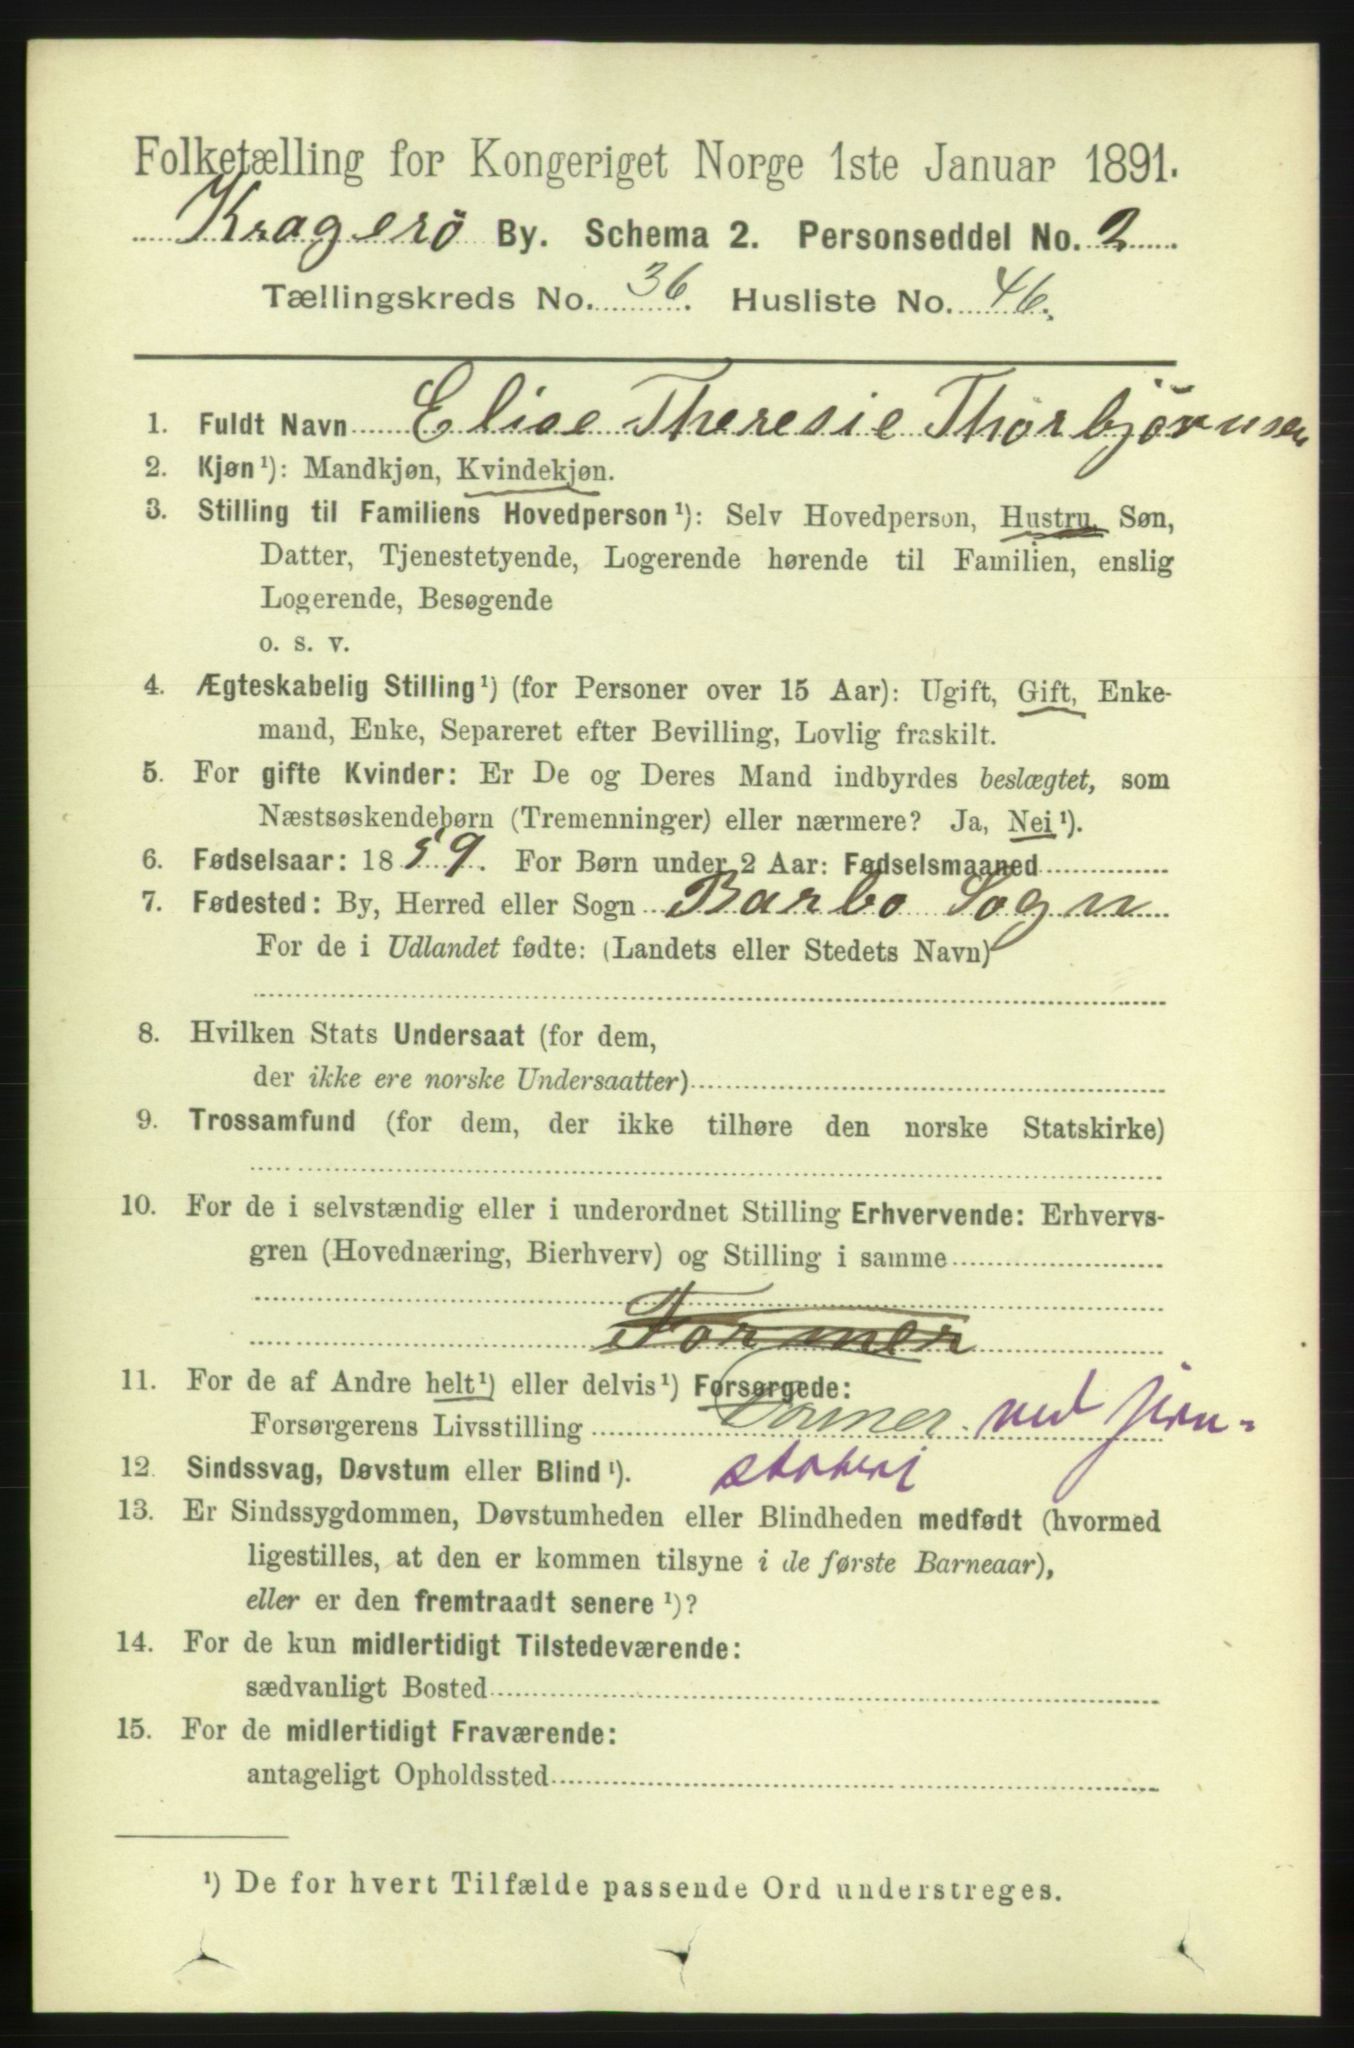 Folketælling for Kongeriget Norge 1ste Januar 1891.
Kragerö By. Schema 2. Personseddel No. 2
Tællingskreds No. 36. Husliste No. 46.
1. Fuldt Navn Elise Theresie Thorbjörnsen
2. Kjøn¹): Mandkjøn, Kvindekjøn.
3. Stilling til Familiens Hovedperson¹): Selv Hovedperson, Hustru, Søn,
Datter, Tjenestetyende, Logerende hørende til Familien, enslig
Logerende, Besøgende
o. s. v.
4. Ægteskabelig Stilling¹) (for Personer over 15 Aar): Ugift, Gift, Enke-
mand, Enke, Separeret efter Bevilling, Lovlig fraskilt.
5. For gifte Kvinder: Er De og Deres Mand indbyrdes beslægtet, som
Næstsøskendebørn (Tremenninger) eller nærmere? Ja, Nei¹).
6. Fødselsaar: 1859. For Børn under 2 Aar: Fødselsmaaned
7. Fødested: By, Herred eller Sogn Barbo Sogn
For de i Udlandet fødte: (Landets eller Stedets Navn)
8. Hvilken Stats Undersaat (for dem,
der ikke ere norske Undersaatter)
9. Trossamfund (for dem, der ikke tilhøre den norske Statskirke)
10. For de i selvstændig eller i underordnet Stilling Erhvervende: Erhvervs-
gren (Hovednæring, Bierhverv) og Stilling i samme
Former
11. For de af Andre helt¹) eller delvis¹) Forsørgede:
Forsørgerens Livsstilling Former ved jern-
støberi
12. Sindssvag, Døvstum eller Blind¹).
13. Er Sindssygdommen, Døvstumheden eller Blindheden medfødt (hvormed
ligestilles, at den er kommen tilsyne i de første Barneaar),
eller er den fremtraadt senere¹)?
14. For de kun midlertidigt Tilstedeværende:
sædvanligt Bosted
15. For de midlertidigt Fraværende:
antageligt Opholdssted
¹) De for hvert Tilfælde passende Ord understreges.